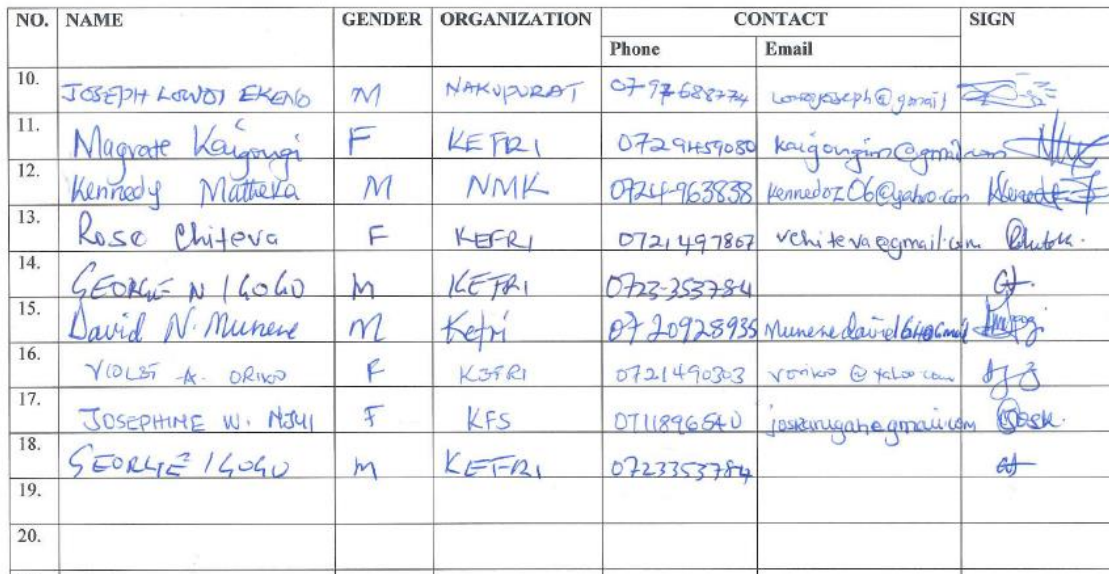 NO. NAME GENDER ORGANIZATION CONTACT SIGN
Phone Email
10. JOSEPH EKENO M NAKUPURAT 0797688774
11. Magrate Kaigongi F KEFRI 0729459080 kaigongim@gmail.com
12. Kennedy Matheka M NMK 0724-963838 kennedoz06@yahoo.com
13. Rose Chiteva F KEFRI 0721497867 rchiteva@gmail.com
14. GEORGE N IGOGO M KEFRI 0723-353784
15. David N. Munene M Kefri 0720928935
16. VIOLET A. ORIKO F KEFRI 0721490303 voriko@yahoo.com
17. JOSEPHINE W. F KFS 0711896540
18. GEORGE IGOGO M KEFRI 0723353784
19.
20.